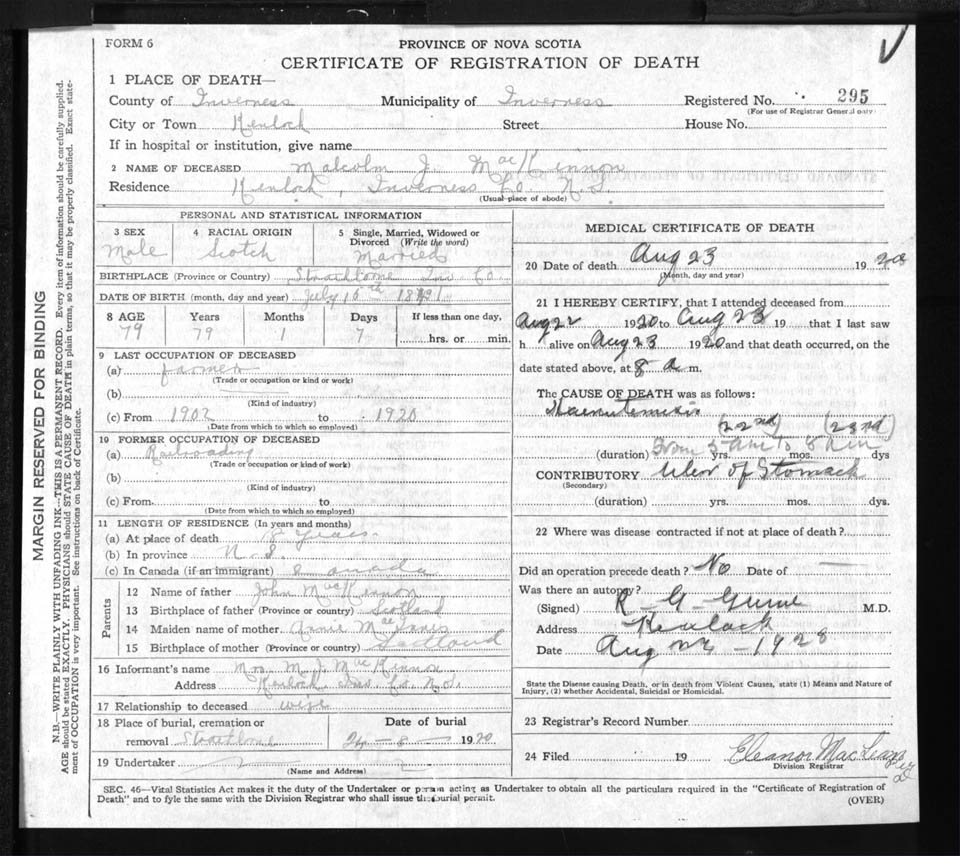 FORM 6
PROVINCE OF NOVA SCOTIA
CERTIFICATE OF REGISTRATION OF DEATH
1 PLACE OF DEATH—
County of Inverness Municipality of Inverness Registered No. 295
(For use of Registrar General only)
City or Town Kenloch Street House No.
If in hospital or institution, give name
2 NAME OF DECEASED Malcolm J. MacKinnon
Residence Kenloch, Inverness Co. N.S.
(Usual place of abode)
PERSONAL AND STATISTICAL INFORMATION
3 SEX Male
4 RACIAL ORIGIN Scotch
5 Single, Married, Widowed or Divorced (Write the word) Married
BIRTHPLACE (Province or Country) Strathlorne Inv Co.
DATE OF BIRTH (month, day and year) July 16th
8 AGE Years Months Days If less than one day,
79 79 1 7 hrs. or min.
9 LAST OCCUPATION OF DECEASED
(a) farmer
(Trade or occupation or kind or work)
(b)
(Kind of industry)
(c) From 1902 to 1920
(Date from which to which so employed)
10 FORMER OCCUPATION OF DECEASED
(a) Railroading
(Trade or occupation or kind of work)
(b)
(Kind of industry)
(c) From to
(Date from which to which so employed)
11 LENGTH OF RESIDENCE (In years and months)
(a) At place of death 18 years
(b) In province N. S.
(c) In Canada (if an immigrant) Canada
Parents
12 Name of father John MacKinnon
13 Birthplace of father (Province or country) Scotland
14 Maiden name of mother Annie MacInnis
15 Birthplace of mother (Province or country) Scotland
16 Informant's name Mrs M J. MacKinnon
Address Kenloch Inv Co. N.S.
17 Relationship to deceased wife
18 Place of burial, cremation or removal Strathlorne
Date of burial
24 - 8 - 1920
19 Undertaker
(Name and Address)
MEDICAL CERTIFICATE OF DEATH
20 Date of death Aug 23 19
(Month, day and year)
21 I HEREBY CERTIFY, that I attended deceased from
Aug 22 1920 to Aug 23 19 that I last saw
h alive on Aug 23 1920 and that death occurred, on the
date stated above, at 8 a m.
The CAUSE OF DEATH was as follows:
(22nd) (23rd)
(duration) From 5 am to 8 am yrs. mos. dys
CONTRIBUTORY Ulcer of Stomach
(Secondary)
(duration) yrs. mos. dys.
22 Where was disease contracted if not at place of death?
Did an operation precede death? No Date of
Was there an autopsy?
(Signed) R - G - M.D.
Address Kenloch
Date Aug - 1928
State the Disease causing Death, or in death from Violent Causes, state (1) Means and Nature of
Injury, (2) whether Accidental, Suicidal or Homicidal.
23 Registrar's Record Number
24 Filed 19 Eleanor MacLean
Division Registrar
SEC. 46—Vital Statistics Act makes it the duty of the Undertaker or person acting as Undertaker to obtain all the particulars required in the "Certificate of Registration of
Death" and to fyle the same with the Division Registrar who shall issue the burial permit.
(OVER)
MARGIN RESERVED FOR BINDING
N.B.—WRITE PLAINLY WITH UNFADING INK—THIS IS A PERMANENT RECORD. Every item of information should be carefully supplied.
AGE should be stated EXACTLY. PHYSICIANS should STATE CAUSE OF DEATH in plain terms, so that it may be properly classified. Exact state-
ment of OCCUPATION is very important. See instructions on back of Certificate.